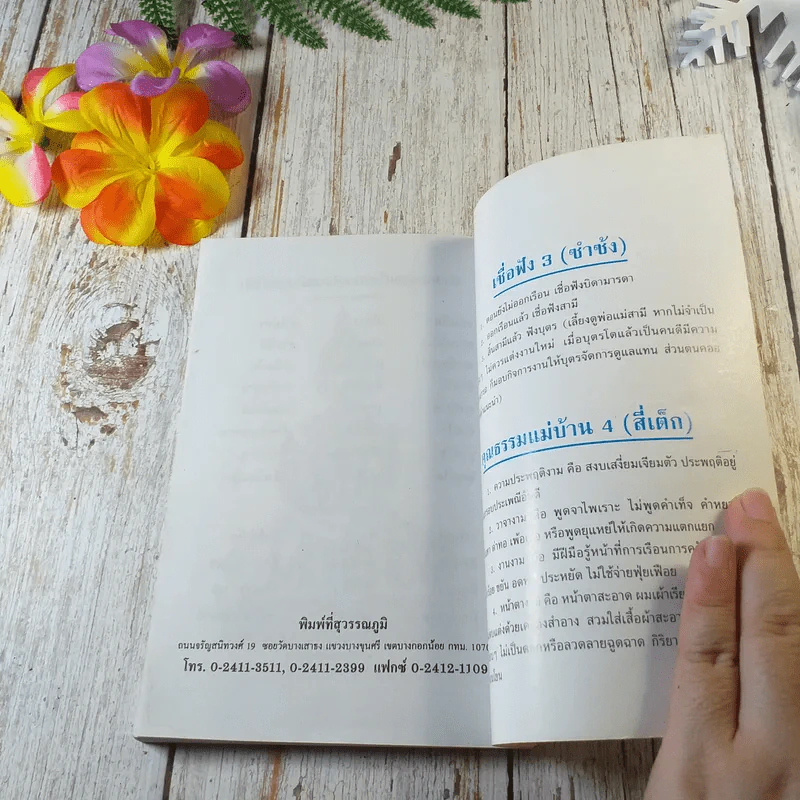 พิมพ์ที่สุวรรณภูมิ
ถนนจรัญสนิทวงศ์ 19 ซอยวัดบางเสาธง แขวงบางขุนศรี เขตบางกอกน้อย กทม.
โทร. 0-2411-3511, 0-2411-2399 แฟกซ์ 0-2412-1109
เชื่อฟัง 3 (ซำช้ง)
ตอนยังไม่ออกเรือน เชื่อฟังบิดามารดา
ออกเรือนแล้ว เชื่อฟังสามี
สิ้นสามีแล้ว ฟังบุตร (เลี้ยงดูพ่อแม่สามี หากไม่จำเป็น
ไม่ควรแต่งงานใหม่ เมื่อบุตรโตแล้วเป็นคนดีมีความ
ก็มอบกิจการงานให้บุตรจัดการดูแลแทน ส่วนตนคอย
แนะนำ)
คุณธรรมแม่บ้าน 4 (สี่เต็ก)
1. ความประพฤติงาม คือ สงบเสงี่ยมเจียมตัว ประพฤติอยู่
2. วาจางาม คือ พูดจาไพเราะ ไม่พูดคำเท็จ
หรือพูดยุแหย่ให้เกิดความแตกแยก
3. งานงาม มีฝีมือรู้หน้าที่การเรือนการ
ขยัน ประหยัด ไม่ใช้จ่ายฟุ่มเฟือย
4. หน้าตา คือ หน้าตาสะอาด
สำอาง สวมใส่เสื้อผ้า
ไม่เป็น หรือลวดลายฉูดฉาด กิริยา